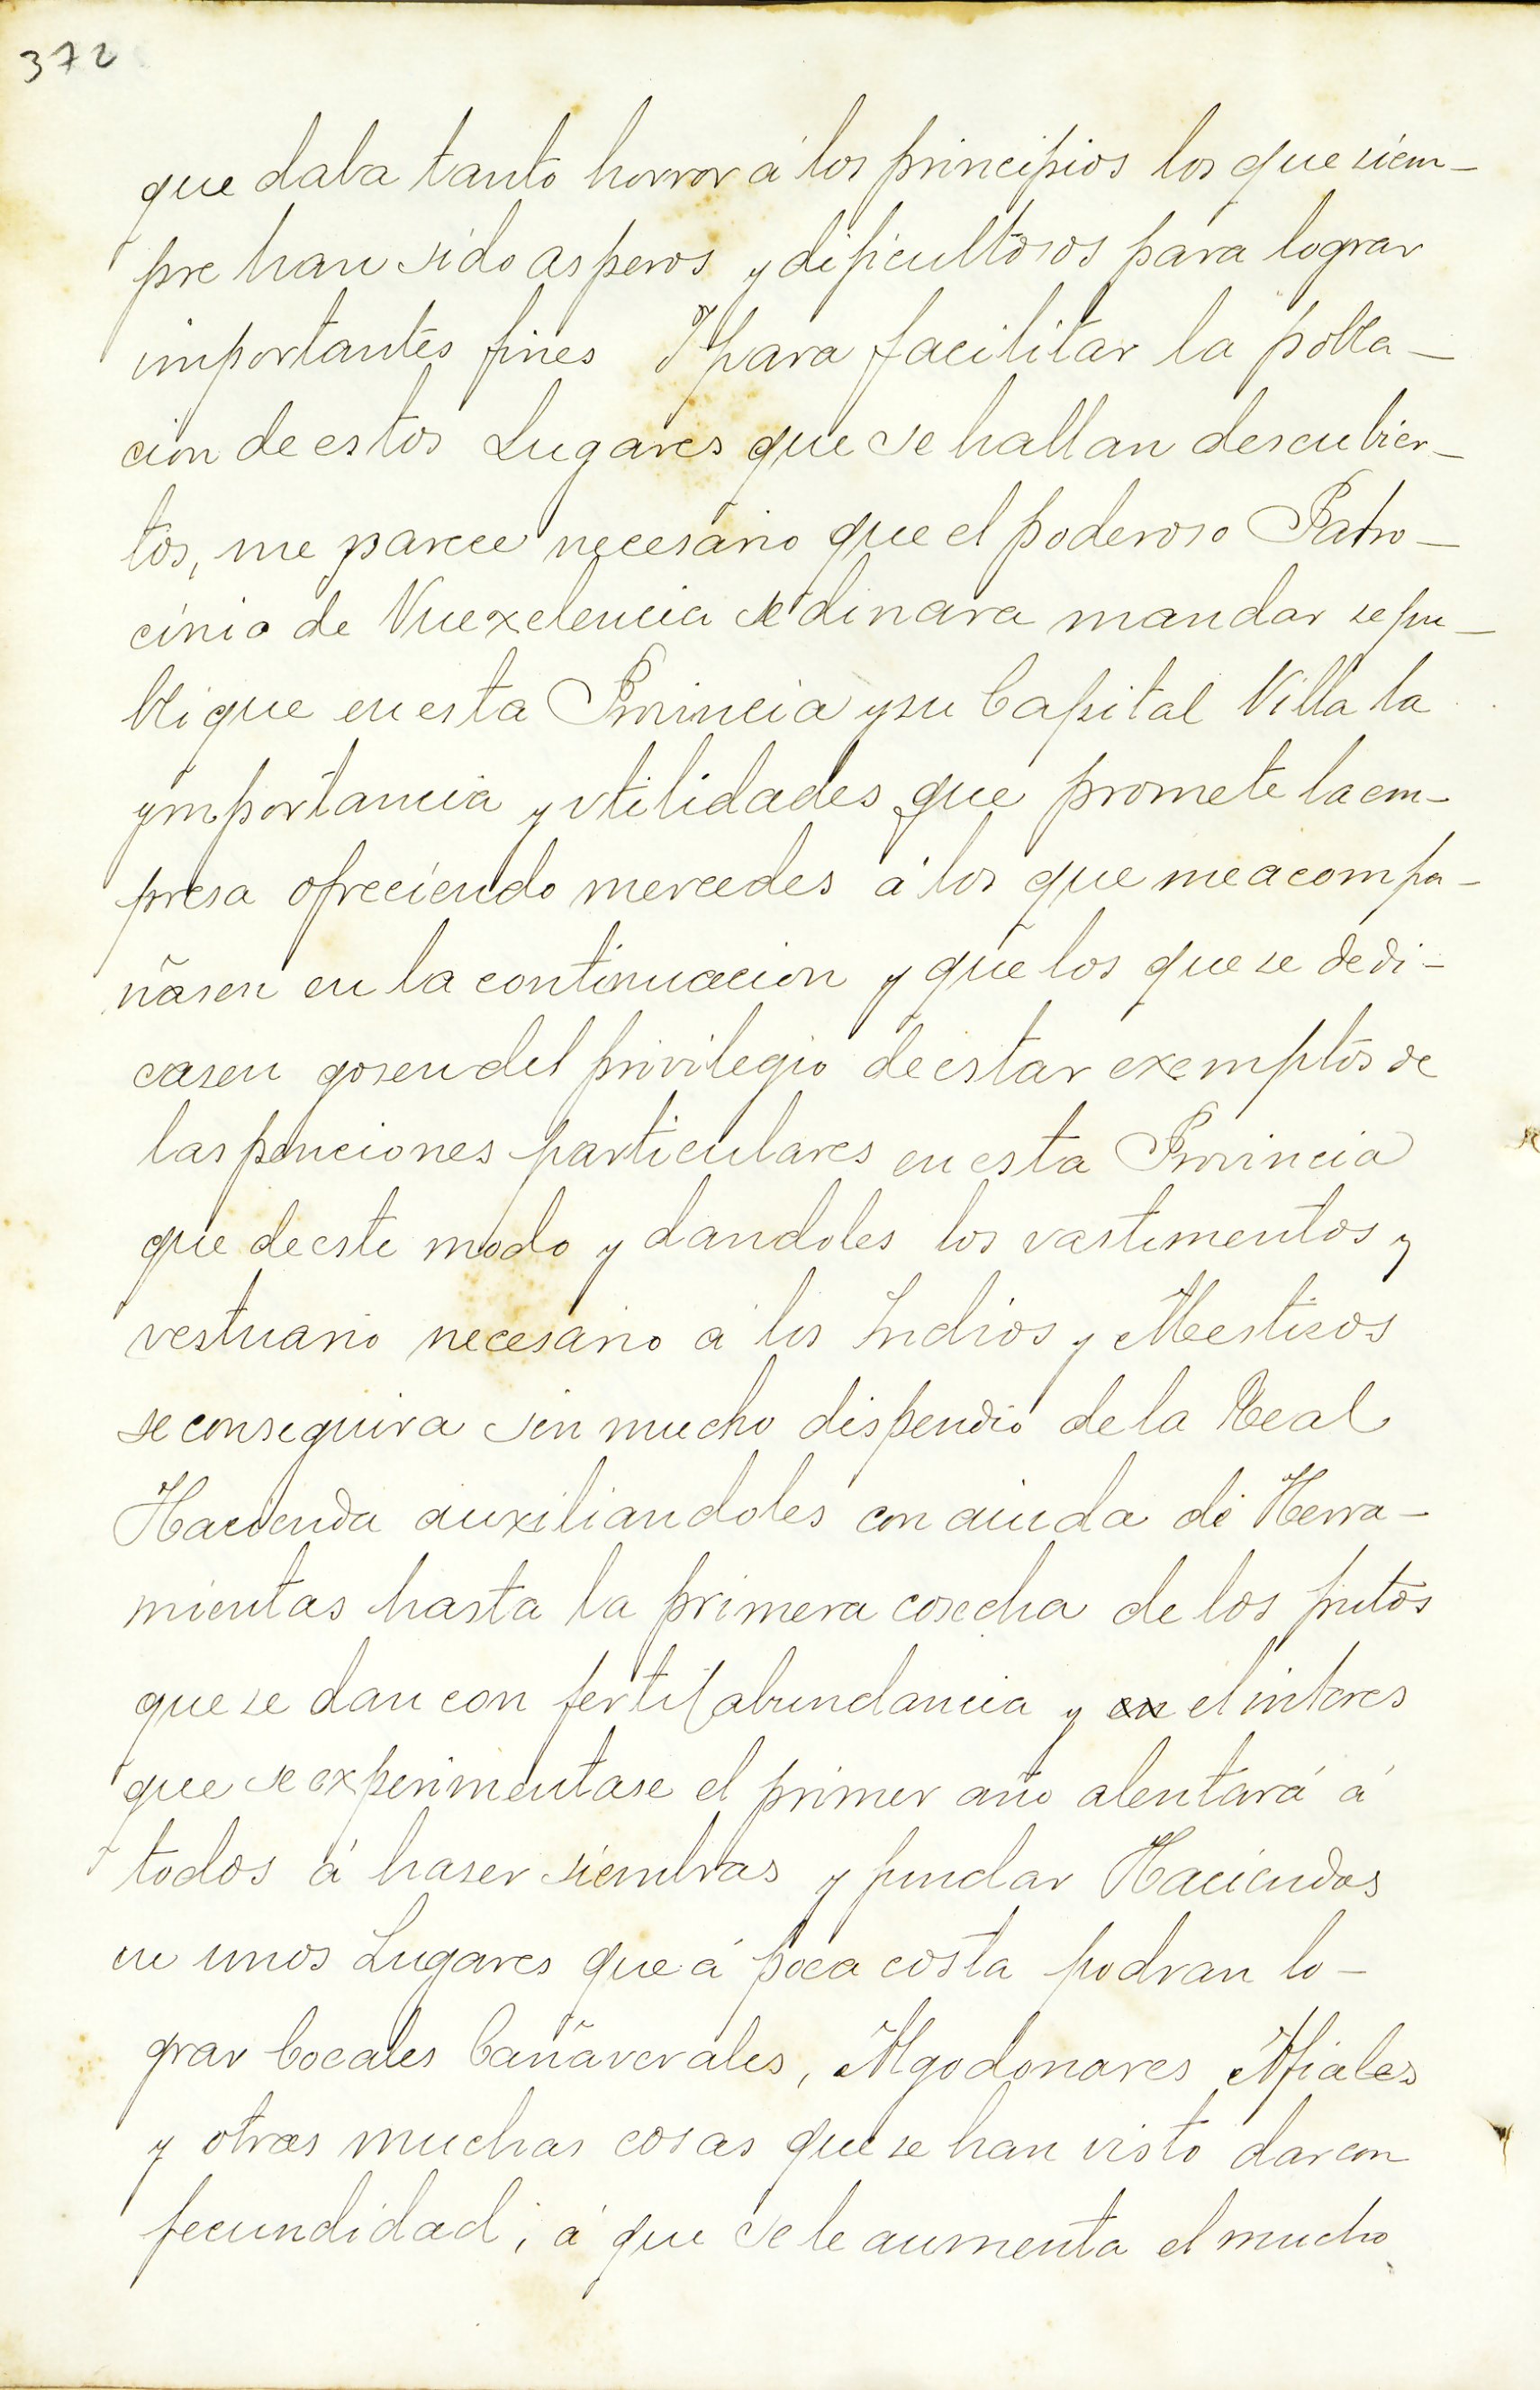 372
que daba tanto horror á los principios los que siem-
pre han sido asperos y dificultosos para lograr
importantes fines Y para facilitar la pobla-
cion de estos Lugares que se hallan descubier-
tos, me parece necesario que el poderoso Patro-
cinio de Vuexelencia se dinara mandar se pu-
blique en esta Provincia y su Capital Villa la
ymportancia y vtilidades que promete la em-
presa ofreciendo mercedes á los que me acompa-
ñasen en la continuacion y que los que se dedi-
casen gosen del privilegio de estar exemptos de
las penciones particulares en esta Provincia
que de este modo y dandoles los vastimentos y
vestuario necesario á los Indios y Mestisos
se conseguira sin mucho dispendio de la Real
Hacienda auxiliandoles con aiuda de Herra-
mientas hasta la primera cosecha de los frutos
que se dan con fertil abundancia y en el interes
que se experimentase el primer año alentará á
todos á haser siembras y fundar Haciendas
en unos Lugares que á poca costa podran lo-
grar Cocales Cañaverales, Algodonares Ajiales
y otras muchas cosas que se han visto dar con
fecundidad; á que se le aumenta el mucho